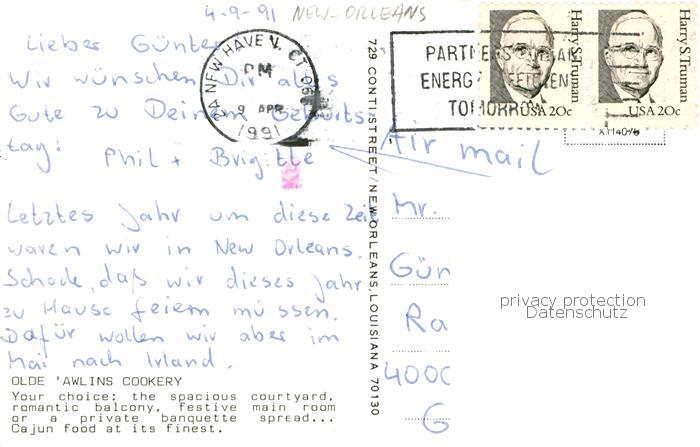 4-9-91 NEW-ORLEANS
Lieber Günter
Wir wünschen Dir alles
Gute zu Deinem Geburts-
tag!
Phil + Brigitte
Letztes Jahr um diese Zeit
waren wir in New Orleans.
Schade, daß wir dieses Jahr
zu Hause feiern müssen.
Dafür wollen wir aber im
Mai nach Irland.
OLDE 'AWLINS COOKERY
Your choice: the spacious courtyard,
romantic balcony, festive main room
or a private banquette spread...
Cajun food at its finest.
NEW HAVEN, CT
PM
9 APR
1991
729 CONTI STREET/NEW ORLEANS, LOUISIANA 70130
ENERG
TOMORROW
Harry S. Truman
USA 20c
Harry S. Truman
USA 20c
Air mail
Mr.
Gün
Ra
4000
G
privacy protection
Datenschutz